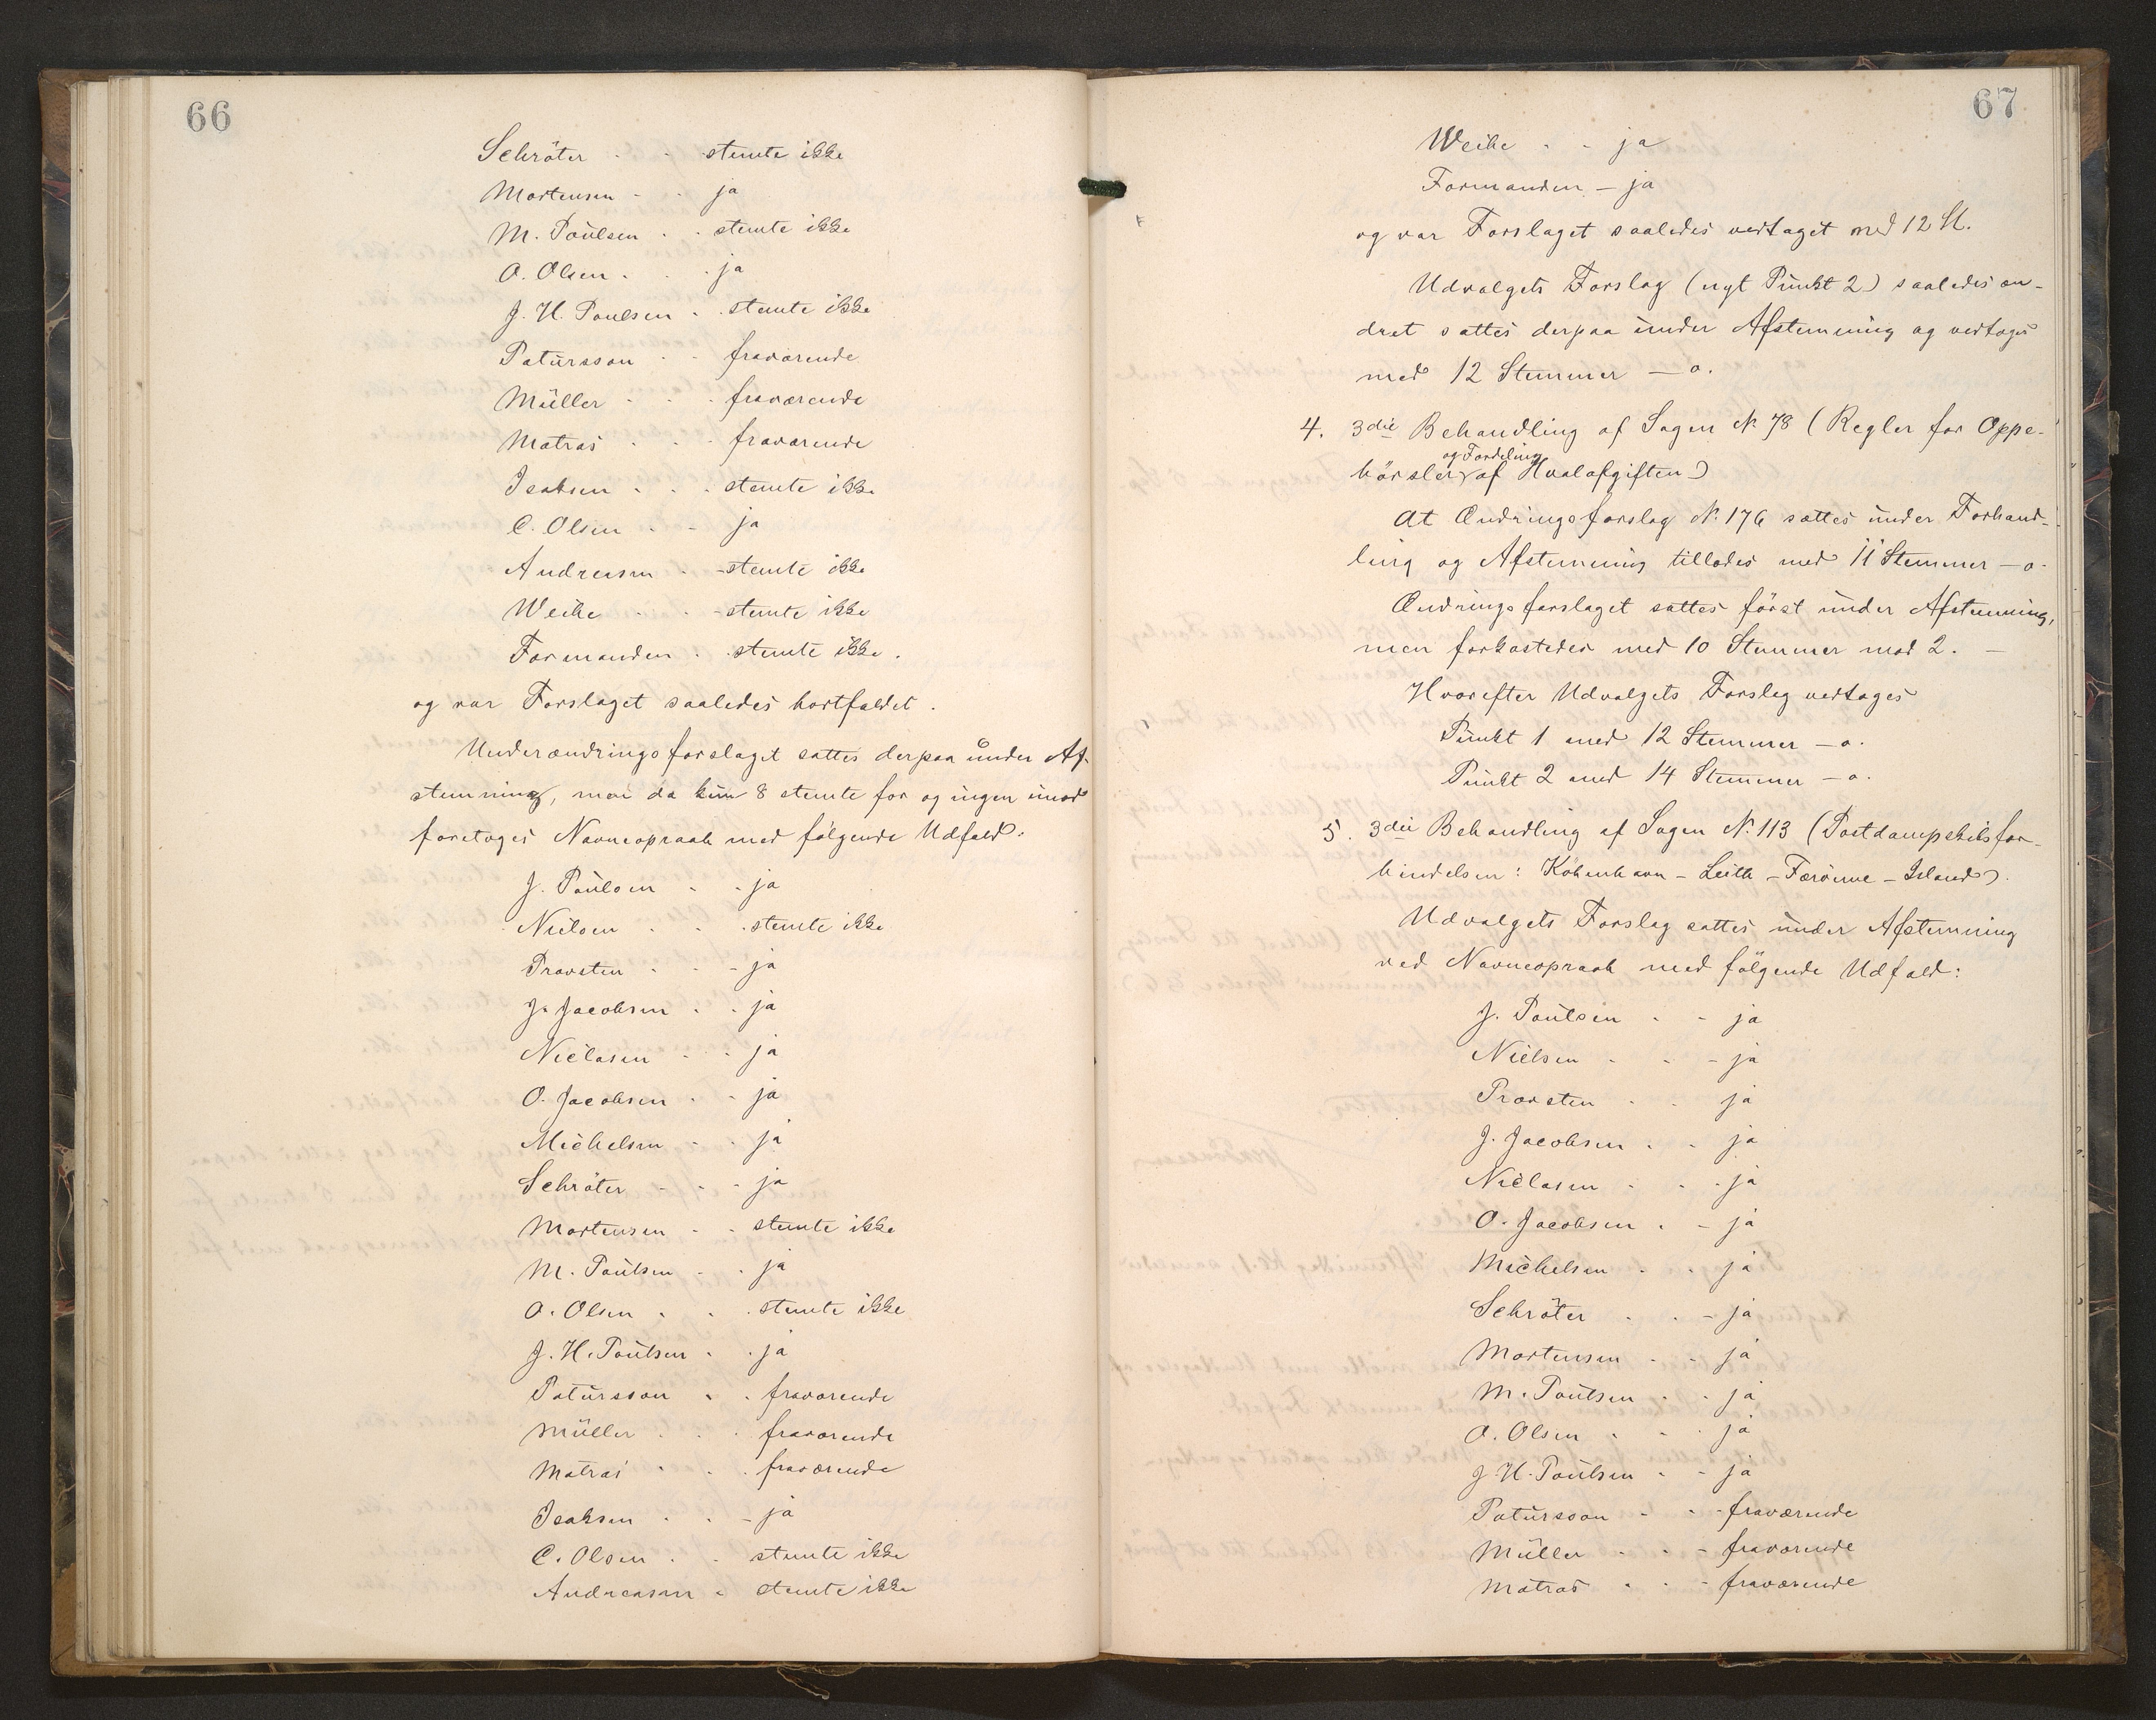 66
Schröter - - stemte ikke
Mortensen - - ja
M. Poulsen - - stemte ikke
O. Olsen - - ja
J. H. Poulsen - stemte ikke
Patursson - - fraværende
Müller - - - fraværende
Matras - - - fraværende
Isaksen - - - stemte ikke
C. Olsen - - ja
Andreasen - - stemte ikke
Weihe - - - stemte ikke
Formanden - stemte ikke.
og var Forslaget saaledes bortfaldet.
Underændringsforslaget sattes derpaa under Af-
stemning, men da kun 8 stemte for og ingen imod
foretoges Navneopraab med følgende Udfald:
J. Poulsen - - ja
Nielsen - - - stemte ikke
Provsten - - - ja
J. Jacobsen - - ja
Niclasen - - ja
O. Jacobsen - - ja
Michelsen - - ja
Schröter - - - ja
Mortensen - - stemte ikke
M. Poulsen - - ja
O. Olsen - - - stemte ikke
J. H. Poulsen - - ja
Patursson - - fraværende
Müller - - - fraværende
Matras - - - fraværende
Isaksen - - - ja
C. Olsen - - stemte ikke
Andreasen - stemte ikke
67
Weihe - - ja
Formanden - ja
og var Forslaget saaledes vedtaget med 12 St.
Udvalgets Forslag (nyt Punkt 2) saaledes æn-
dret sattes derpaa under Afstemning og vedtoges
med 12 Stemmer - o.
4. 3die Behandling af Sagen N. 78 (Regler for Oppe-
og Fordeling
börsler af Hvalafgiften)
At Ændringsforslag N. 176 sættes under Forhand-
ling og Afstemning tillodes med 11 Stemmer - o.
Ændringsforslaget sattes först under Afstemning,
men forkastedes med 10 Stemmer mod 2. -
Hvorefter Udvalgets Forslag vedtoges
Punkt 1 med 12 Stemmer - o.
Punkt 2 med 14 Stemmer - o.
5. 3die Behandling af Sagen N. 113 (Postdampskibsfor-
bindelsen: Köbenhavn - Leith - Færöerne - Island).
Udvalgets Forslag sattes under Afstemning
ved Navneopraab med følgende Udfald:
J. Poulsen - - ja
Nielsen - - - ja
Provsten - - ja
J. Jacobsen - - ja
Niclasen - - - ja
O. Jacobsen - - ja
Michelsen - - ja
Schröter - - - ja
Mortensen - - ja
M. Poulsen - - ja
O. Olsen - - - ja
J. H. Poulsen - - ja
Patursson - - - fraværende
Müller - - - fraværende
Matras - - - fraværende